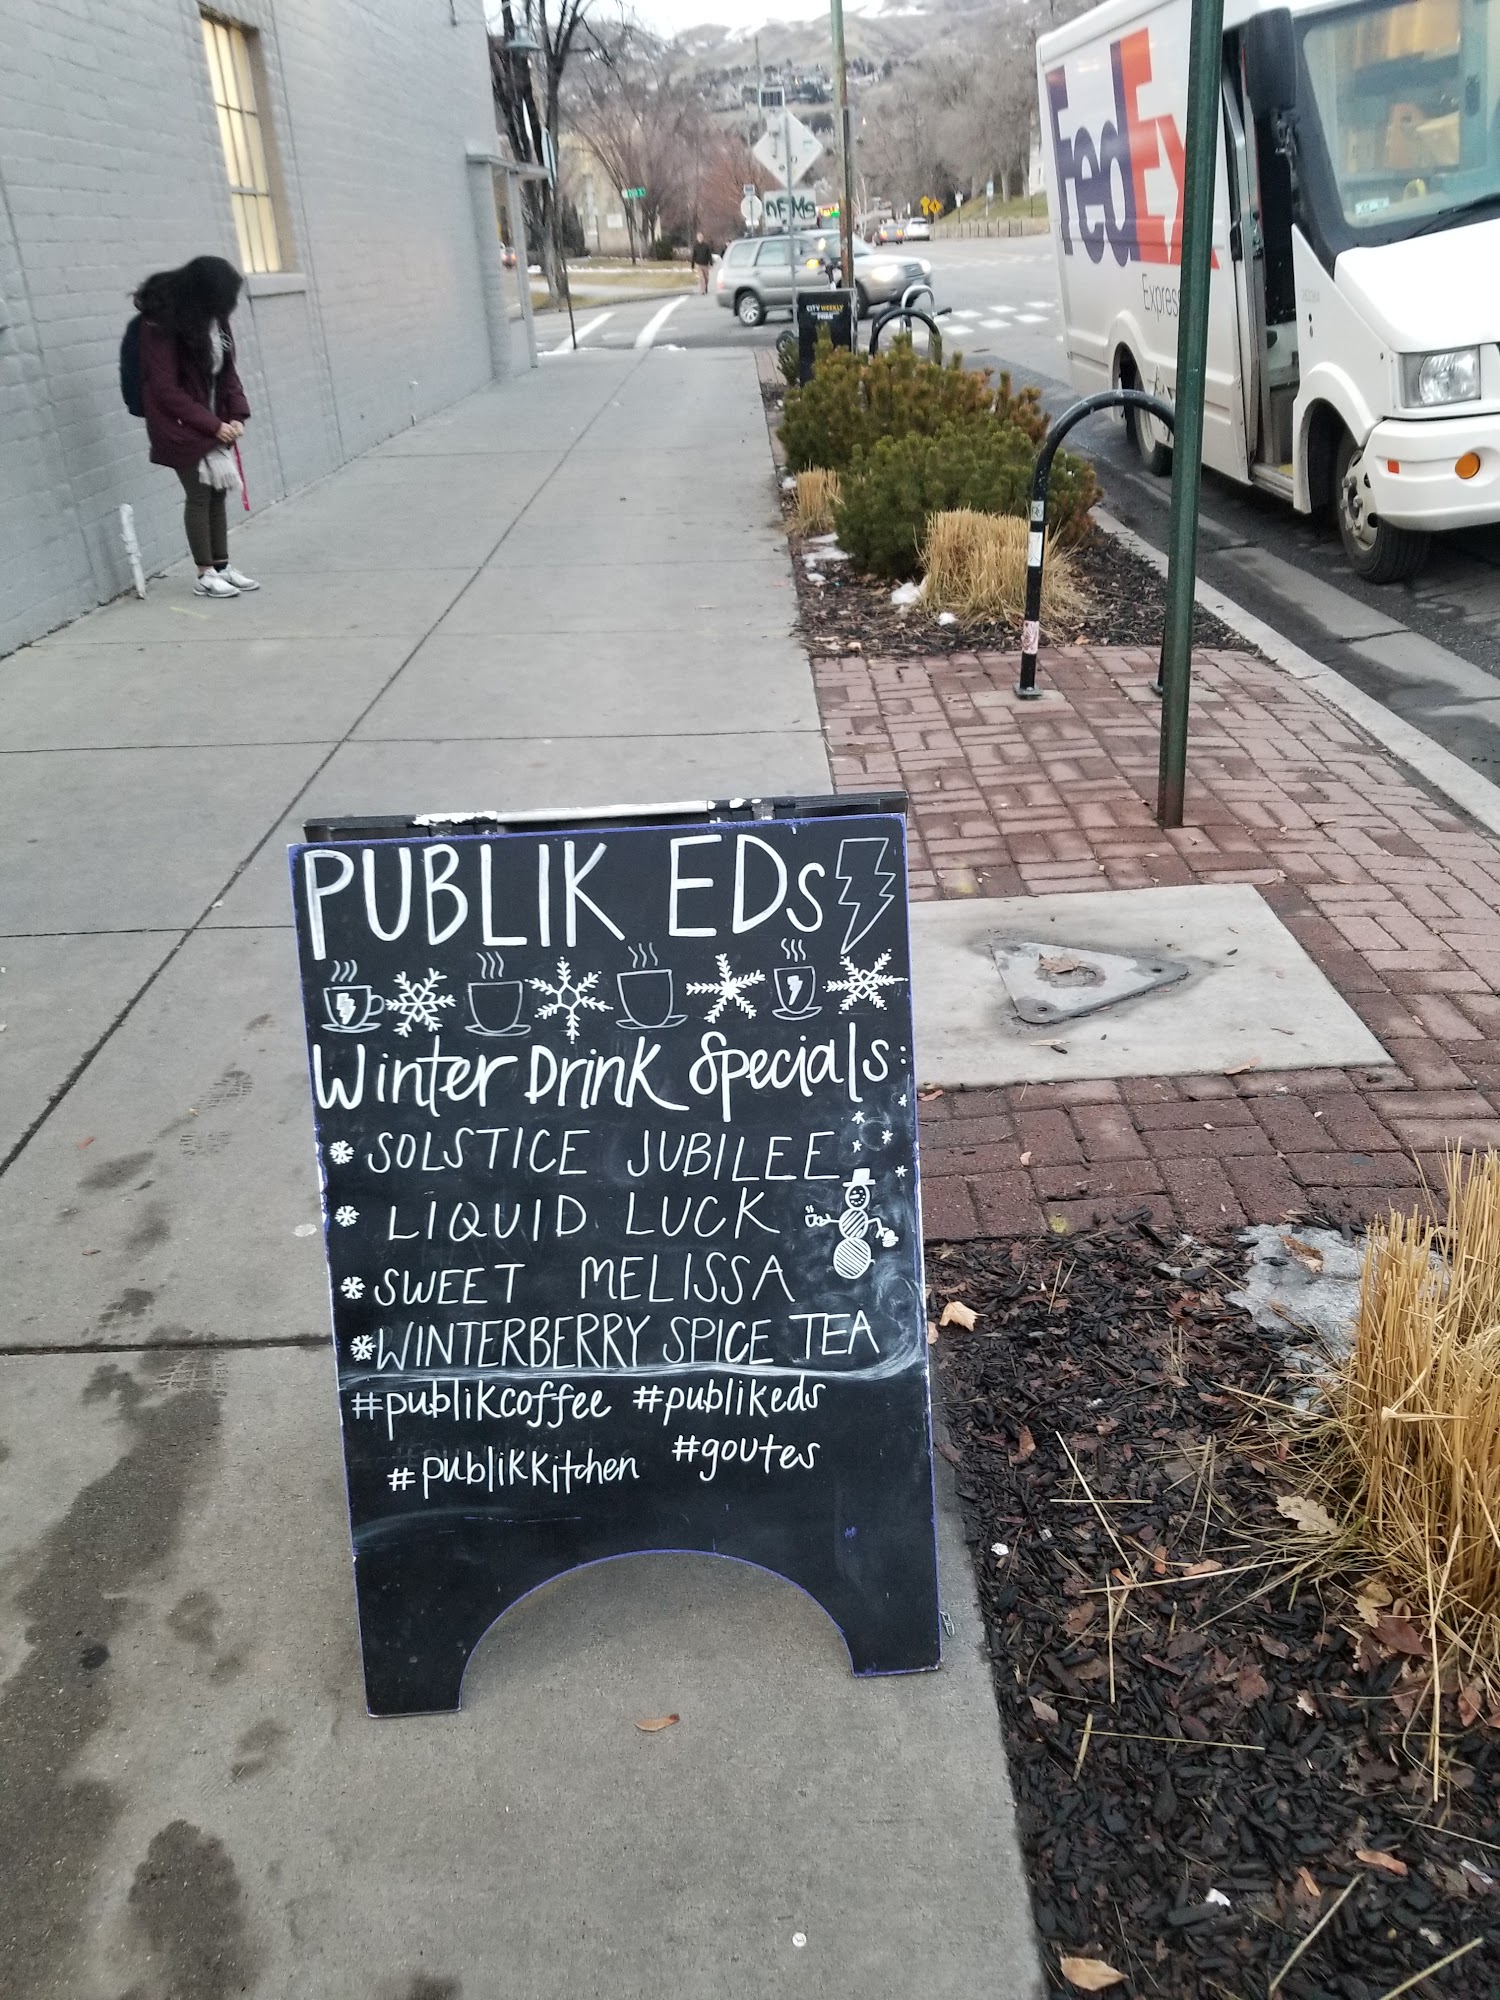 FedEx
Express
CITY WEEKLY
FREE
PUBLIK EDs
Winter Drink Specials:
SOLSTICE JUBILEE
LIQUID LUCK
SWEET MELISSA
WINTERBERRY SPICE TEA
#publikcoffee #publikeds
#publikkitchen #goutes